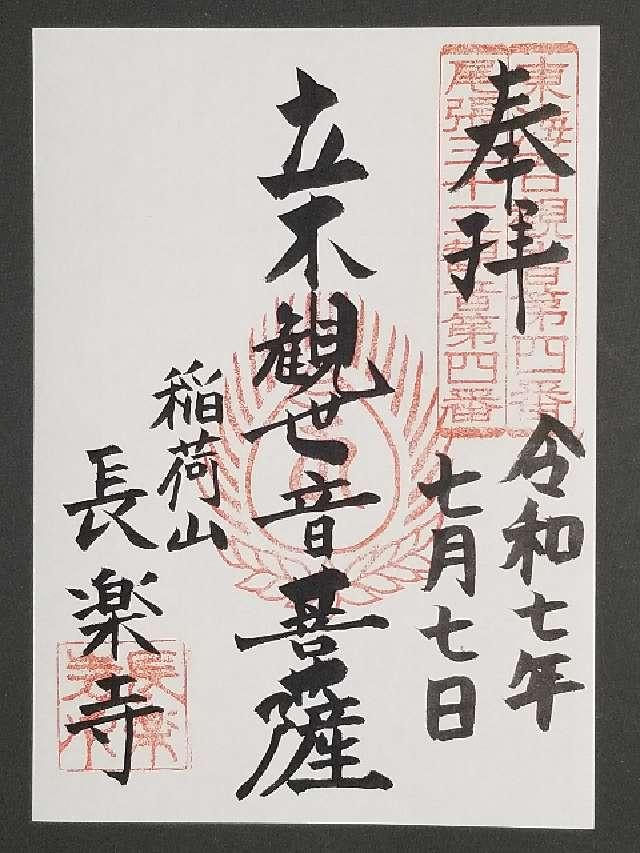 奉拝
東海百観音第四番
尾張三十三観音第四番
令和七年
七月七日
立木観世音菩薩
稲荷山
長楽寺